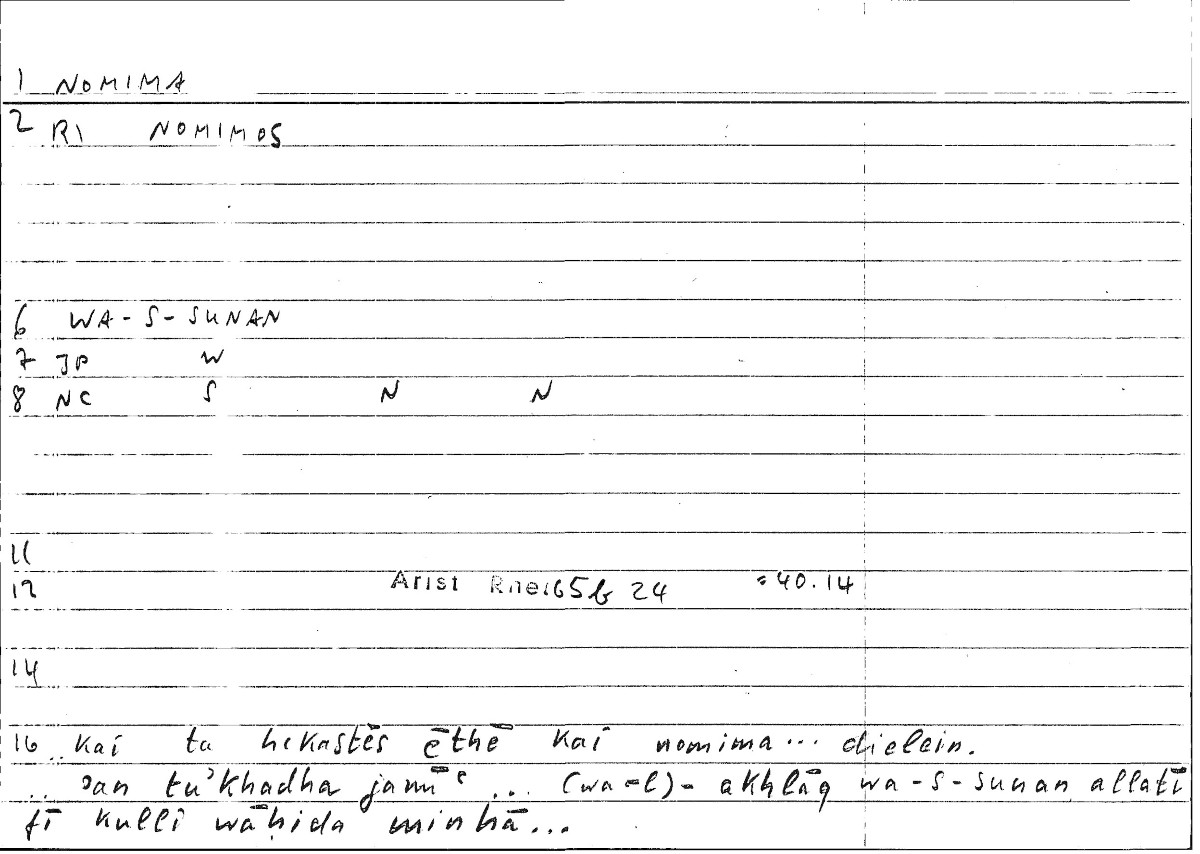 1 NOMIMA
2 RI NOMIMOS
6 WA-S-SUNAN
7 JP W
8 NC S N N
11
12 Arist Rhet 65b 24 =40.14
14
16 kai ta hekastēs ēthē kai nomima... dielein.
.. ʾan tuʾkhadha jamīʿ ... (wa-l)-akhlāq wa-s-sunan allatī
fī kulli wāḥida minhā...